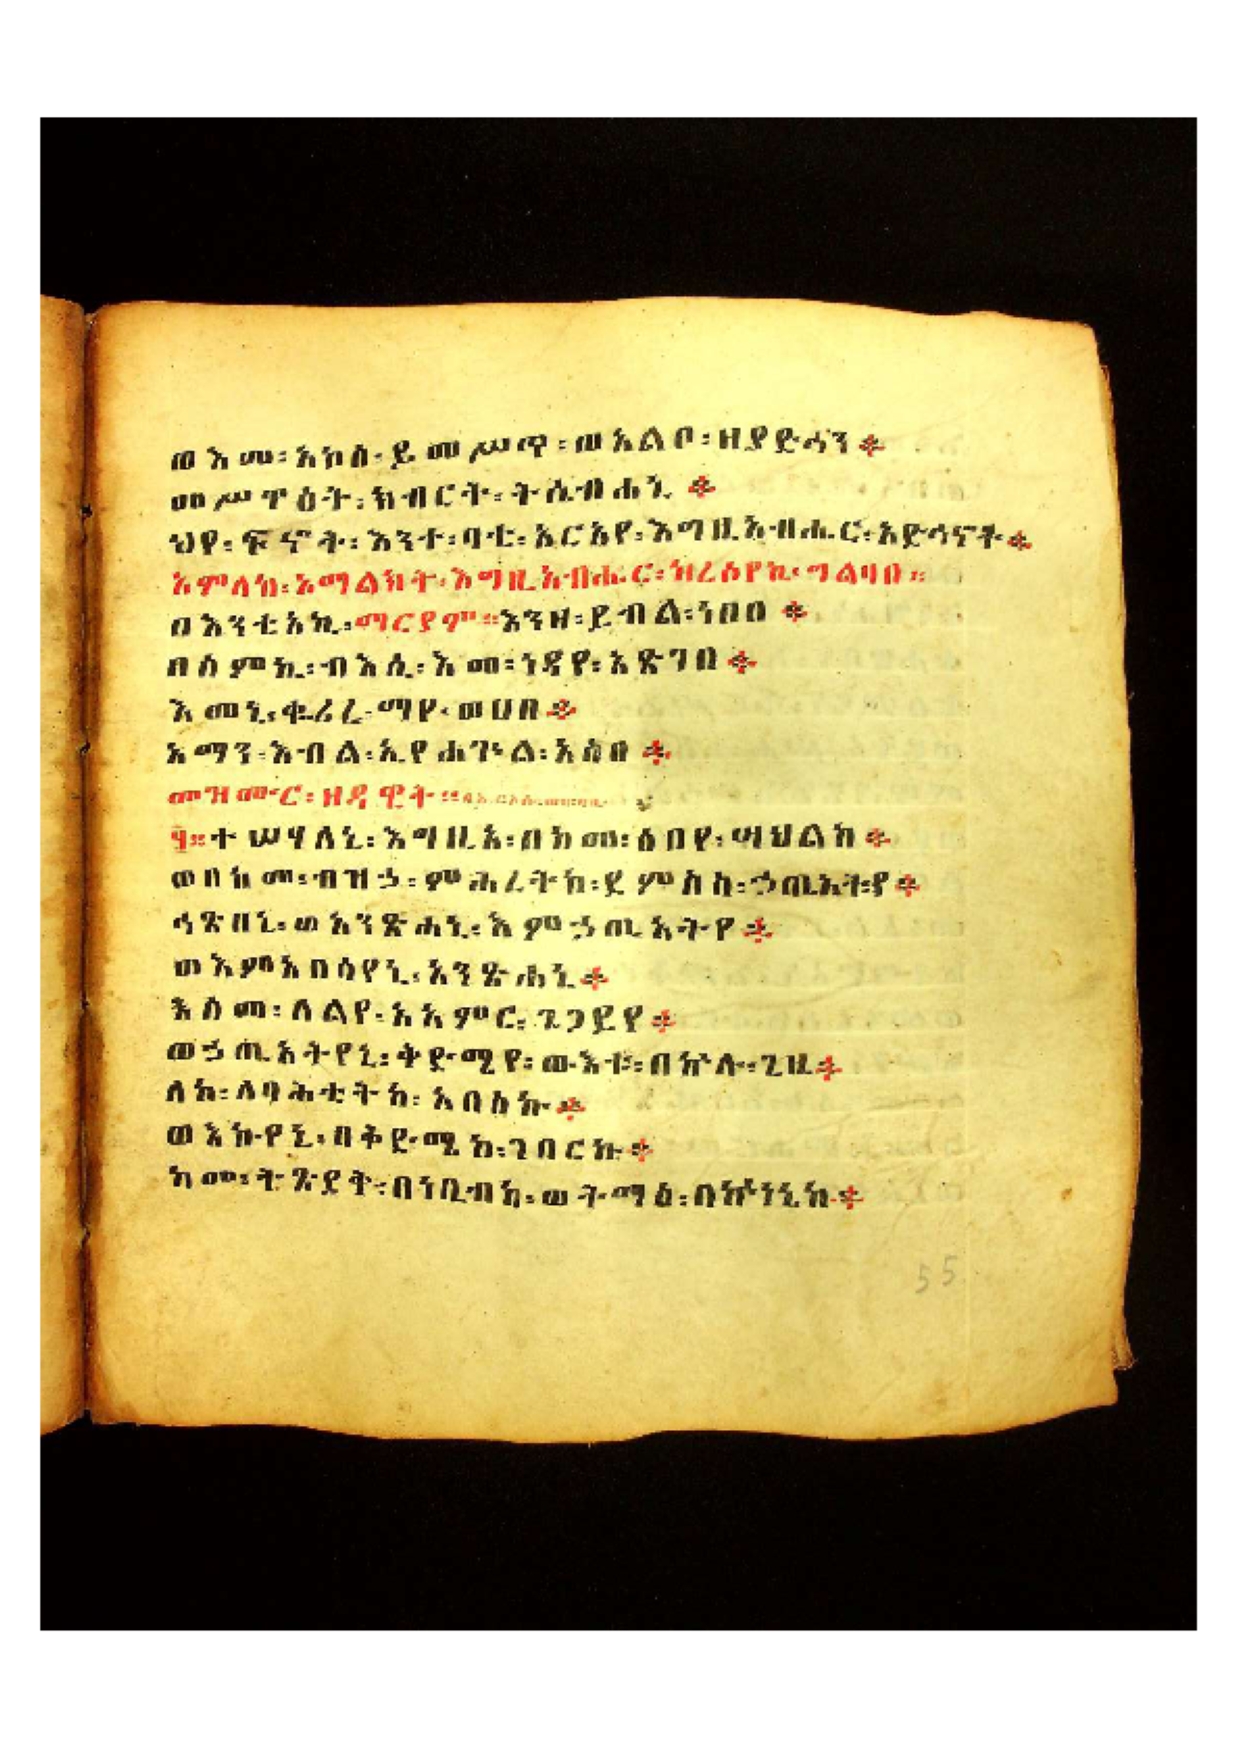 ወእመ፡ አኮሰ፡ ይመሥጥ፡ ወአልቦ፡ ዘያድኅን፨
መሥዋዕት፡ ክብርት፡ ትሴብሐኒ፨
ህየ፡ ፍኖት፡ እንተ፡ ባቲ፡ አርአየ፡ እግዚአብሔር፡ አድኅኖቶ፨
አምላከ፡ አማልክት፡ እግዚአብሔር፡ ግልባቤ።
በእንቲአኪ፡ ማርያም። እንዘ፡ ይብል፡ ነበበ፨
በስምኪ፡ ብእሲ፡ እመ፡ ነዳየ፡ አጽገበ፨
እመኒ፡ ቁሪረ፡ ማየ፡ ወሀበ፨
አማን፡ እብል፡ ኢየሐጕል፡ አስቦ፨
መዝሙር፡ ዘዳዊት።
፶። ተሣሃለኒ፡ እግዚኦ፡ በከመ፡ ዕበየ፡ ሣህልከ፨
ወበከመ፡ ብዝኃ፡ ምሕረትከ፡ ደምስስ፡ ኃጢአትየ፨
ኅጽበኒ፡ ወአንጽሐኒ፡ እምኃጢአትየ፨
ወእምአበሳየኒ፡ አንጽሐኒ፨
እስመ፡ ለልየ፡ አአምር፡ ጌጋይየ፨
ወኃጢአትየኒ፡ ቅድሜየ፡ ውእቱ፡ በኵሉ፡ ጊዜ፨
ለከ፡ ለባሕቲትከ፡ አበስኩ፨
ወእኩየኒ፡ በቅድሜከ፡ ገበርኩ፨
ከመ፡ ትጽደቅ፡ በነቢብከ፡ ወትማዕ፡ በኵነኔከ፨
55